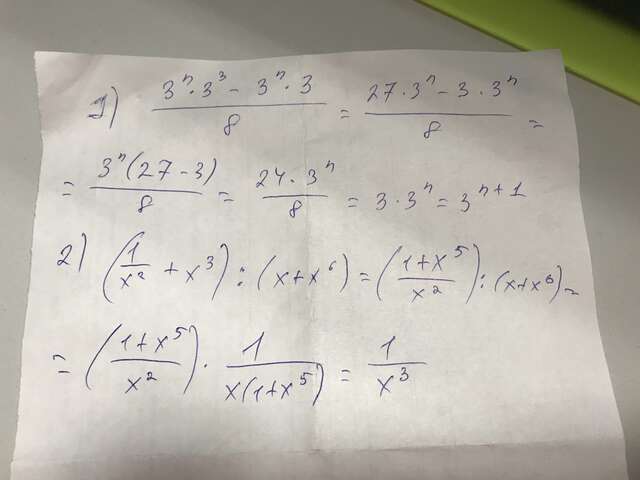 1) (3ⁿ·3³ - 3ⁿ·3)/8 = (27·3ⁿ - 3·3ⁿ)/8 =
= 3ⁿ(27-3)/8 = 24·3ⁿ/8 = 3·3ⁿ = 3ⁿ⁺¹
2) (1/x² + x³) : (x+x⁶) = ((1+x⁵)/x²) : (x+x⁶) =
= ((1+x⁵)/x²) · 1/(x(1+x⁵)) = 1/x³